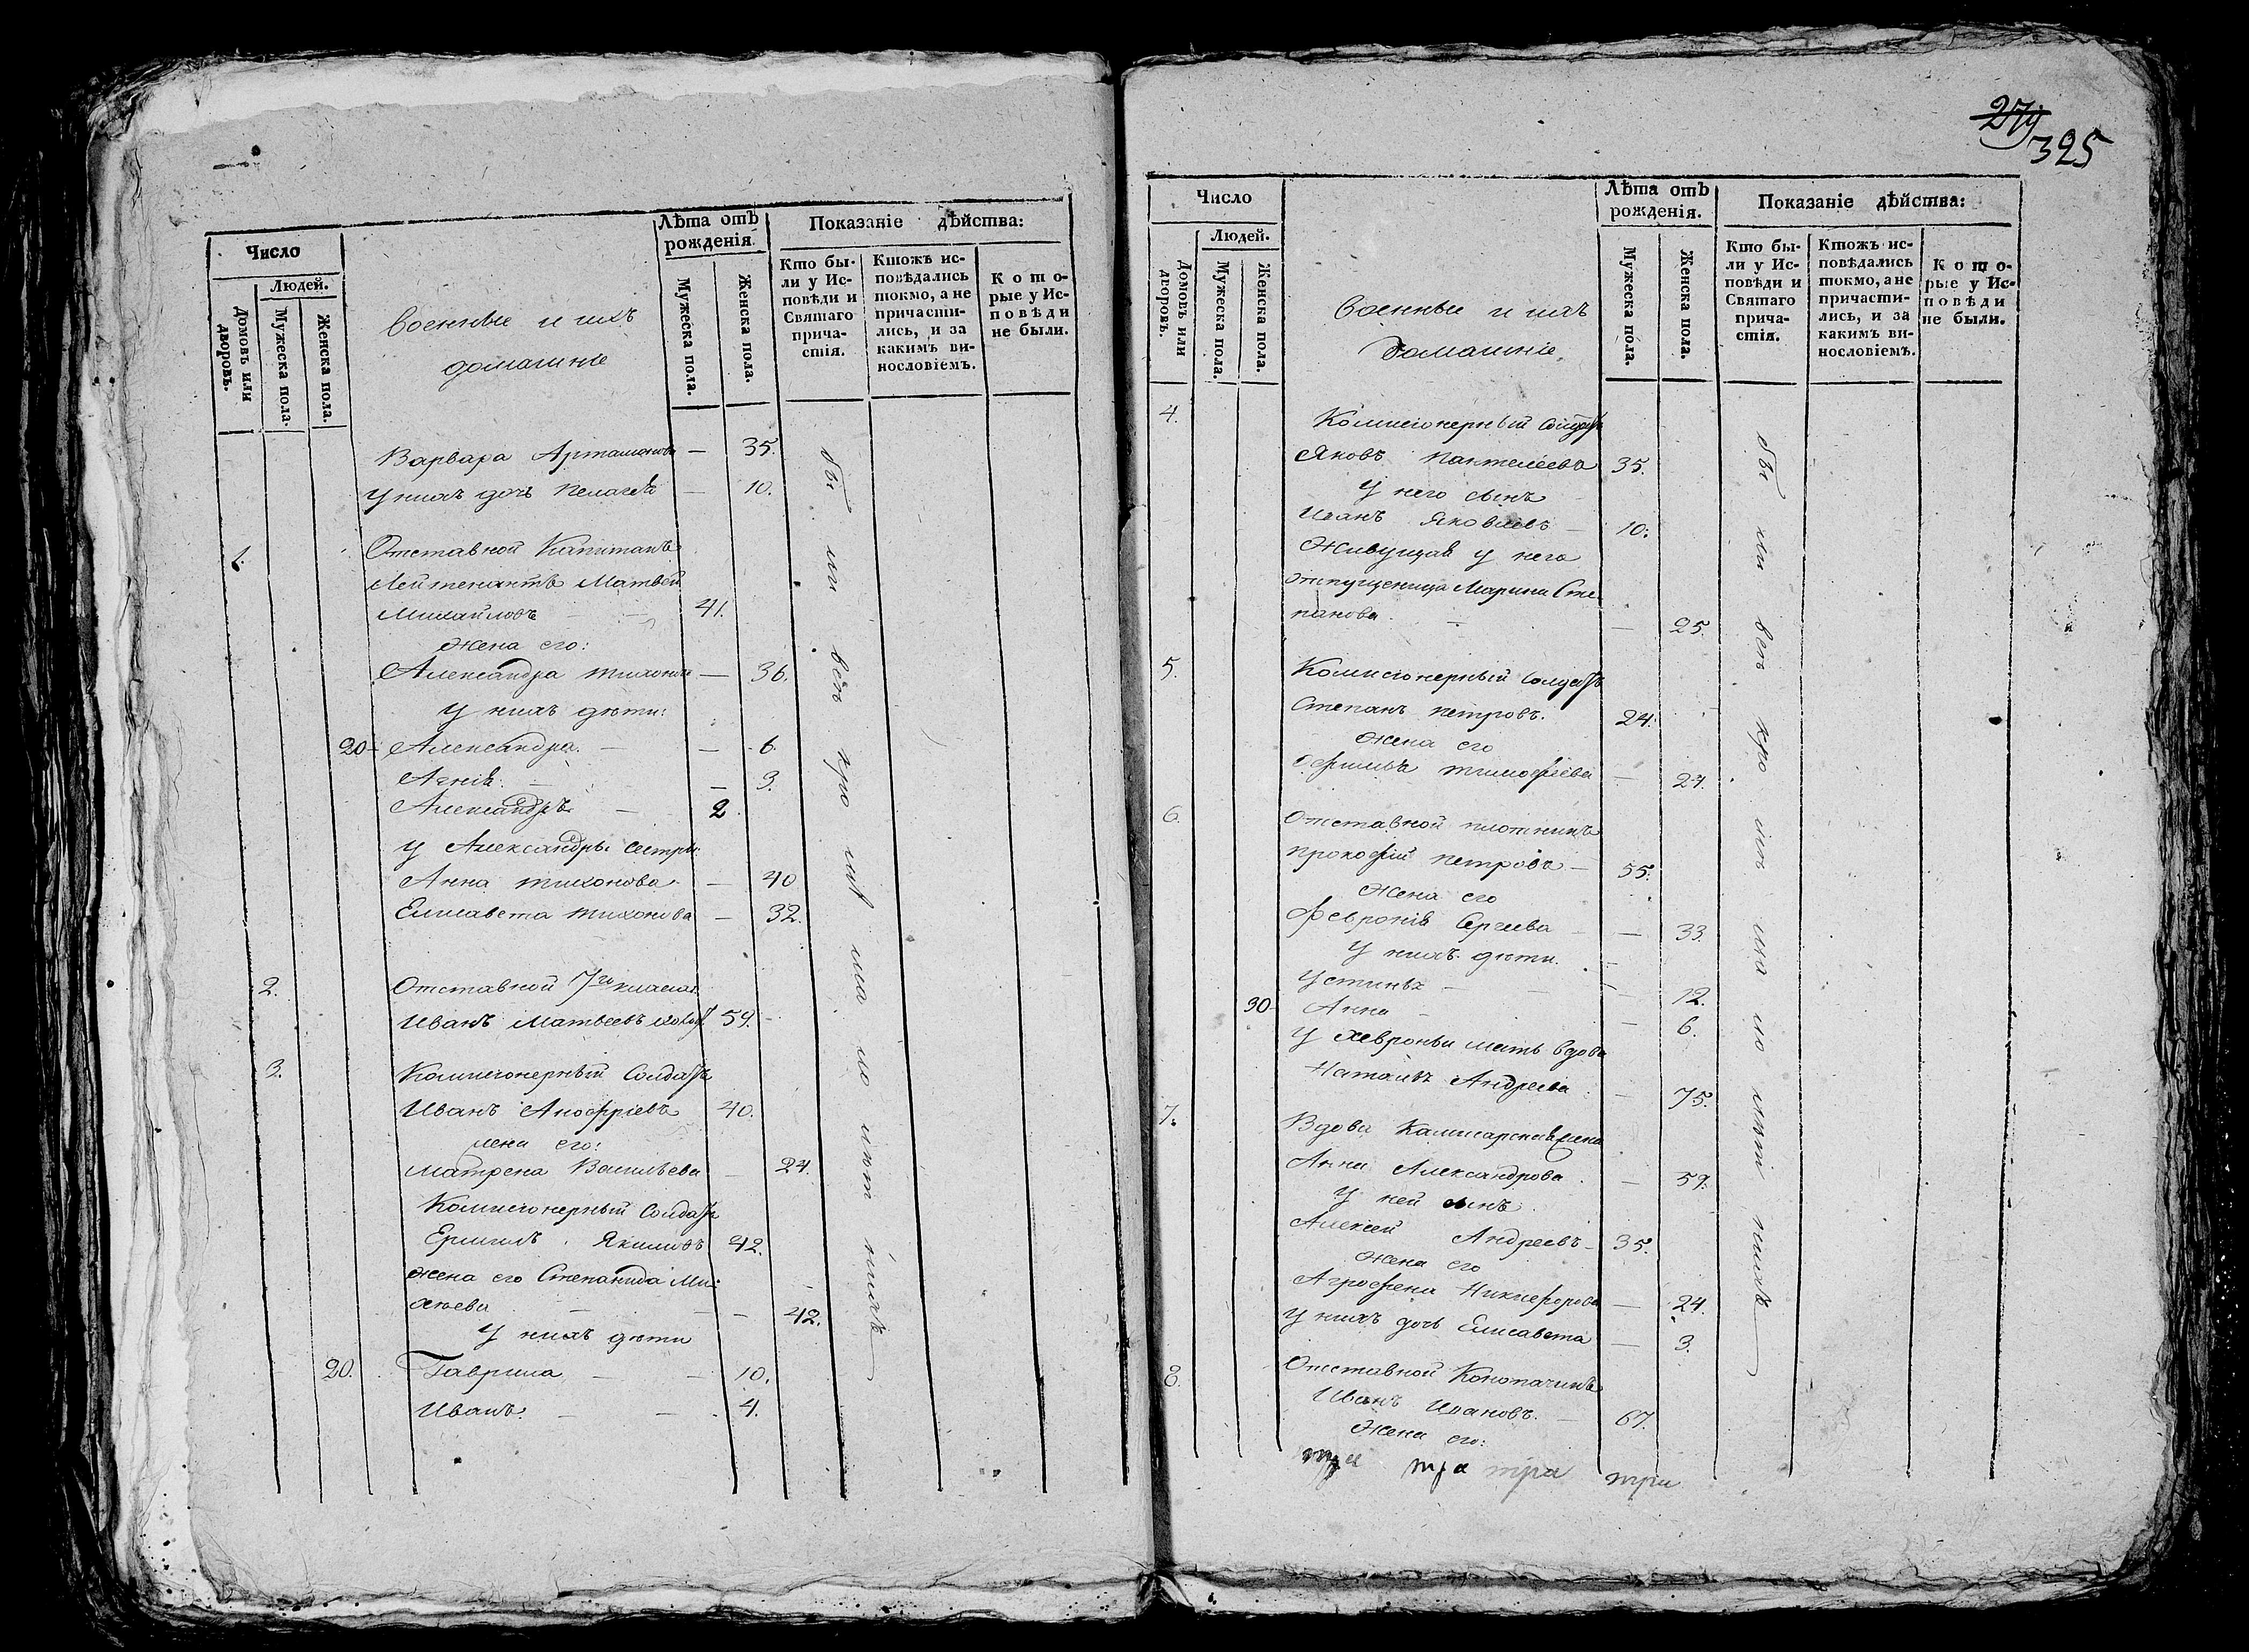 Число
Людей.
Домовъ или дворовъ.
Мужеска пола.
Женска пола.
военные и ихъ
домашніе
Лѣта отъ
рожденія.
Мужеска пола.
Женска пола.
Показаніе дѣйства:
Кто бы-
ли у Ис-
повѣди и
Святаго
прича-
стія.
Ктожъ ис-
повѣдались
токмо, а не
причасти-
лись, и за
какимъ ви-
нословіемъ.
К о т о-
рые у Ис-
п о в ѣ д и
не были.
Варвара Артамонова — 35.
У нихъ дочь Пелагея — 10.
1. Отставной Капитанъ
Лейтенантъ Матвей
Михайловъ — 41.
жена его:
Александра Тихонова — 36.
У нихъ дети:
20 Александра — — 6.
Агнія. — — 3.
Александръ — 2.
У Александры сестры:
Анна Тихонова — 40
Елисавета Тихонова — 32.
2. Отставной 7го класса
Иванъ Матвеевъ 59.
3. Комисіонерный Солдатъ
Иванъ Анофріевъ 40.
жена его:
Матрена Васильева — 24.
Комисіонерный Солдатъ
Ермилъ Якимовъ 42.
жена его Степанида Ми-
хеева — — 42.
У нихъ дети
20. Гаврила — — 10.
Иванъ. — — 4.
279
325
Число
Людей.
Домовъ или дворовъ.
Мужеска пола.
Женска пола.
военные и ихъ
домашніе,
Лѣта отъ
рожденія.
Мужеска пола.
Женска пола.
Показаніе дѣйства:
Кто бы-
ли у Ис-
повѣди и
Святаго
прича-
стія.
Ктожъ ис-
повѣдались
токмо, а не
причасти-
лись, и за
какимъ ви-
нословіемъ.
К о т о-
рые у Ис-
п о в ѣ д и
не были.
4. Комисіонерный Солдатъ
Яковъ Пантелеевъ 35.
У него сынъ
Иванъ Яковлевъ — 10.
Живущая у него
отпущеница Марина Сте-
панова. — — 25.
5. Комисіонерный солдатъ
Степанъ Петровъ. 24.
жена его
Офимья Тимофеева — 24.
6. Отставной плотникъ
Прокофій Петровъ — 55.
жена его
Февронія Сергеева — 33.
У нихъ дети.
Устинья — — 12.
30 Анна — — 6.
У Хевроньи мать вдова
Наталья Андреева — 75.
7. Вдова Камисарская жена
Анна Александрова — 59.
У ней сынъ
Алексей Андреевъ — 35.
жена его
Агрофена Никиефорова — 24.
У нихъ дочь Елисавета — 3.
8. Отставной Конопатчикъ
Иванъ Ивановъ. — 67.
жена его:
тра тра тра тра